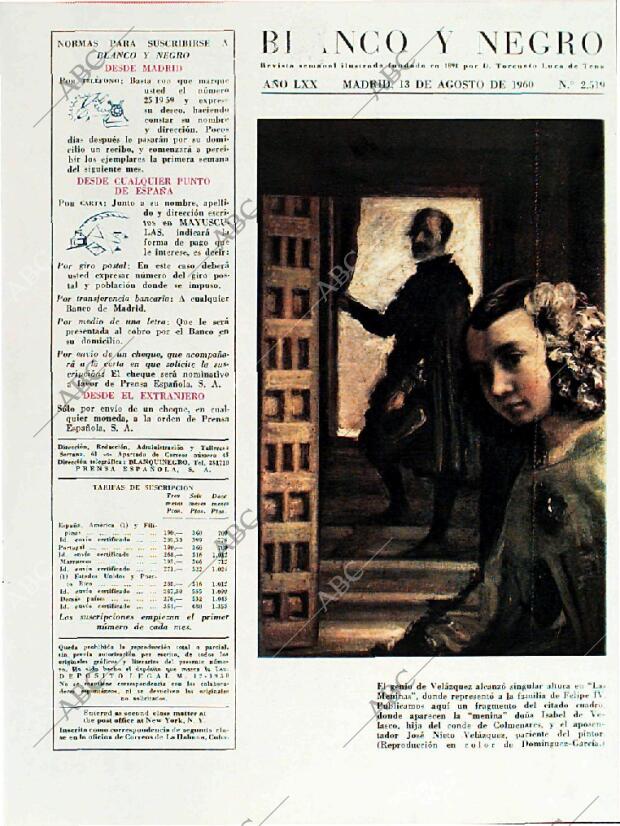 NORMAS PARA SUSCRIBIRSE A
BLANCO Y NEGRO
DESDE MADRID
Por TELÉFONO: Basta con que marque
usted el número
251959 y exprese
su deseo, haciendo
constar su nombre
y dirección. Pocos
días después le pasarán por su domi-
cilio un recibo, y comenzará a perci-
bir los ejemplares la primera semana
del siguiente mes.
DESDE CUALQUIER PUNTO
DE ESPAÑA
Por CARTA: Junto a su nombre, apelli-
do y dirección escri-
tos en MAYUSCU-
LAS, indicará la
forma de pago que
le interese, es decir:
Por giro postal: En este caso deberá
usted expresar número del giro pos-
tal y población donde se impuso.
Por transferencia bancaria: A cualquier
Banco de Madrid.
Por medio de una letra: Que le será
presentada al cobro por el Banco en
su domicilio.
Por envío de un cheque, que acompaña-
rá a la carta en que solicite la sus-
cripción: El cheque será nominativo
a favor de Prensa Española, S. A.
DESDE EL EXTRANJERO
Sólo por envío de un cheque, en cual-
quier moneda, a la orden de Prensa
Española, S. A.
Dirección, Redacción, Administración y Talleres:
Serrano, 61 — Apartado de Correos número 43
Dirección telegráfica: BLANQUINEGRO. Tel. 251710
PRENSA ESPAÑOLA, S. A.
TARIFAS DE SUSCRIPCION
Tres meses Seis meses Doce meses
Ptas. Ptas. Ptas.
España, América (1) y Fili-
pinas
Id. envío certificado
Portugal
Id. envío certificado
Marruecos
Id. envío certificado
(1) Estados Unidos y Puer-
to Rico
Id. envío certificado
Demás países
Id. envío certificado
Las suscripciones empiezan el primer
número de cada mes.
Queda prohibida la reproducción total o parcial,
sin previa autorización por escrito, de todos los
originales gráficos y literarios del presente núme-
ro. Ha sido hecho el depósito que marca la Ley.
DEPOSITO LEGAL M. 12-1958
No se mantiene correspondencia con los colabora-
dores espontáneos, ni se devuelven los originales
no solicitados.
Entered as second class matter at
the post office at New York, N. Y.
Inscrito como correspondencia de segunda cla-
se en la oficina de Correos de La Habana, Cuba.
BLANCO Y NEGRO
Revista semanal ilustrada fundada en 1891 por D. Torcuato Luca de Tena
AÑO LXX MADRID, 13 DE AGOSTO DE 1960 N.º 2.519
El genio de Velázquez alcanzó singular altura en "Las
Meninas", donde representó a la familia de Felipe IV.
Publicamos aquí un fragmento del citado cuadro,
donde aparecen la "menina" doña Isabel de Ve-
lasco, hija del conde de Colmenares, y el aposen-
tador José Nieto Velázquez, pariente del pintor.
(Reproducción en color de Domínguez-García.)